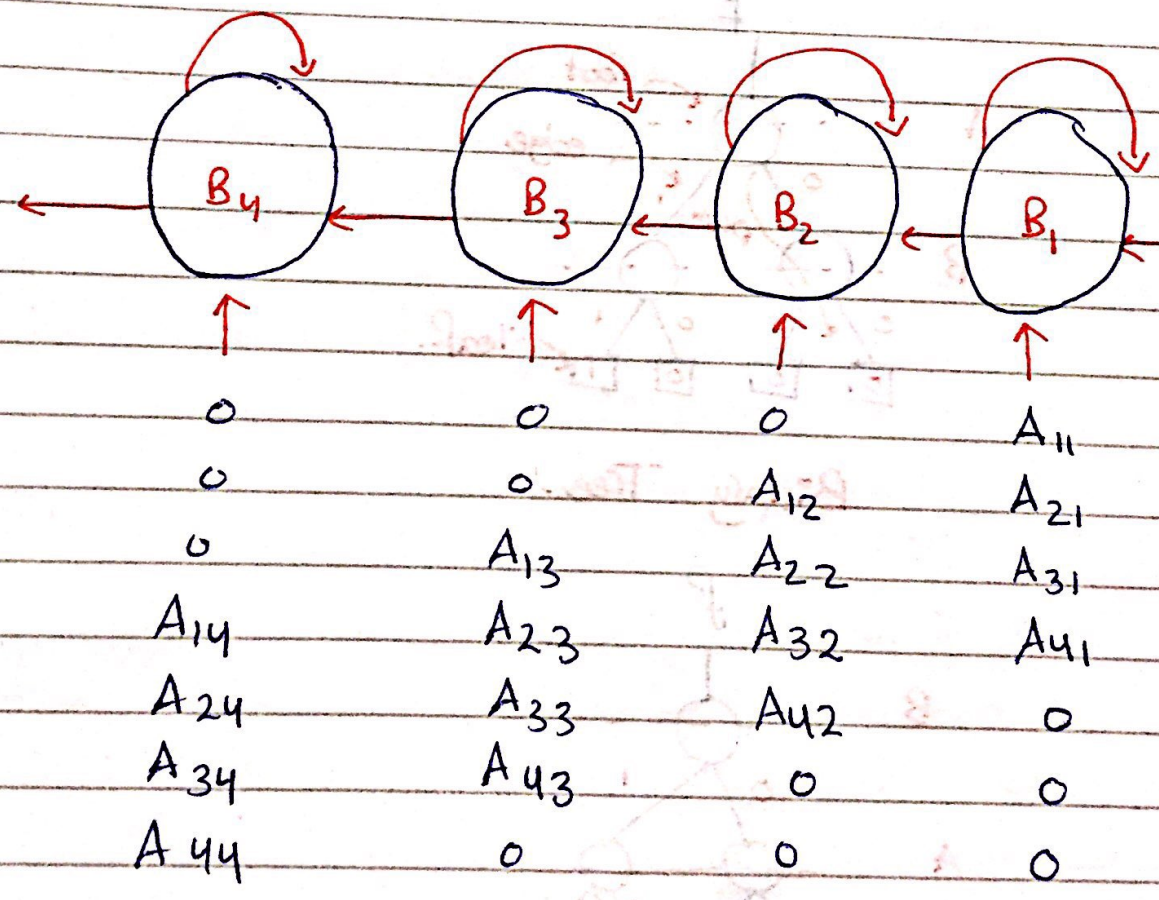 B4 B3 B2 B1
0 0 0 A11
0 0 A12 A21
0 A13 A22 A31
A14 A23 A32 A41
A24 A33 A42 0
A34 A43 0 0
A44 0 0 0